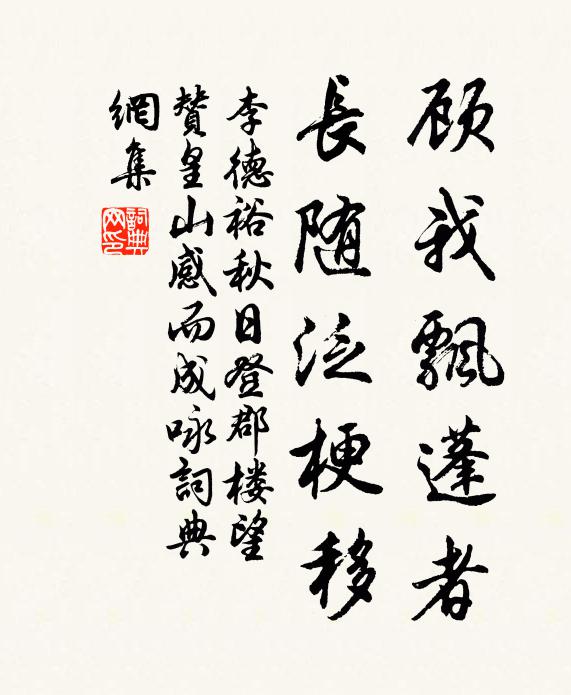 顾我飘蓬者
長随泛梗移
李德裕秋日登郡楼望
贊皇山感而成咏詞典
網集
詞典
网印